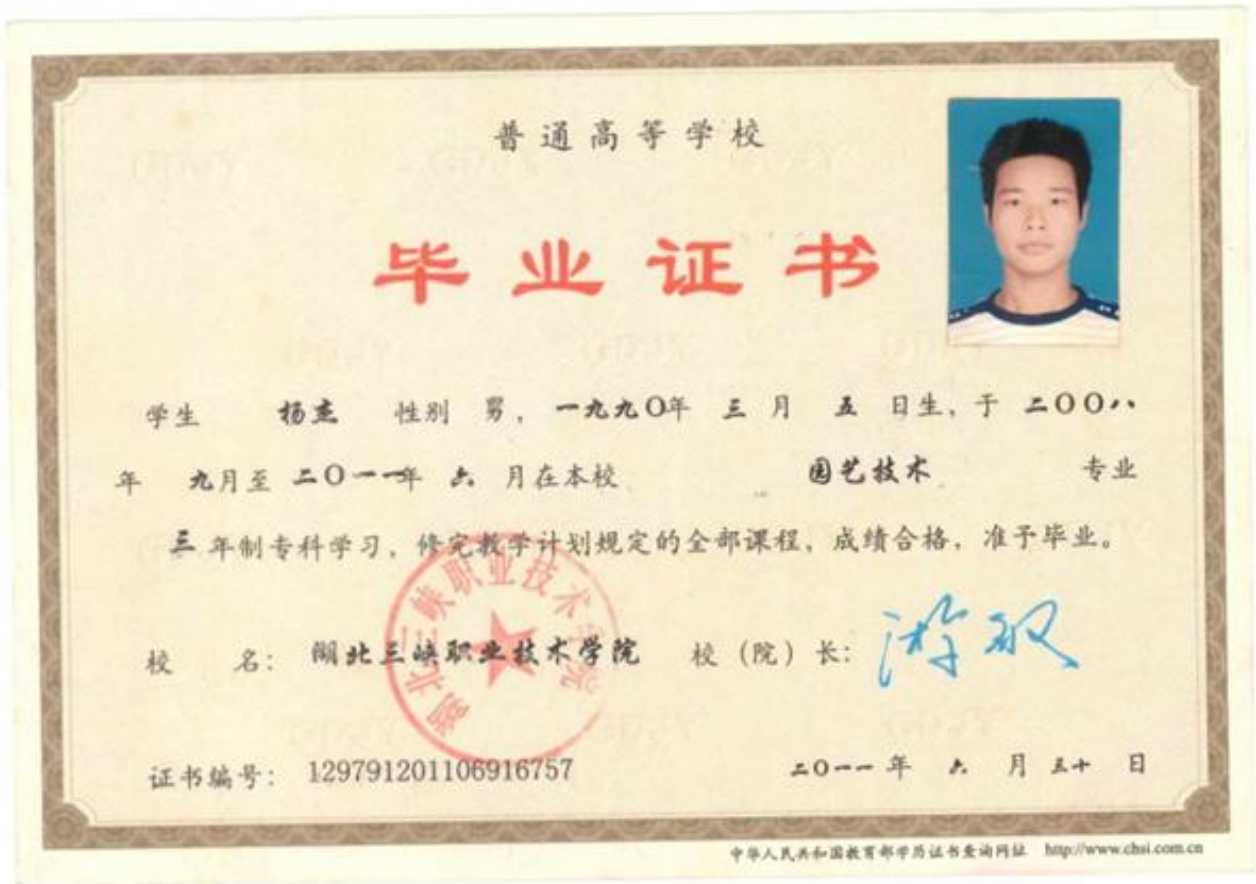 普通高等学校
毕业证书
学生 杨杰 性别 男，一九九〇年 三 月 五 日生，于 二〇〇八
年 九月至 二〇一一年 六 月在本校 园艺技术 专业
三 年制专科学习，修完教学计划规定的全部课程，成绩合格，准予毕业。
校 名： 湖北三峡职业技术学院 校（院）长：
湖北三峡职业技术学院
证书编号： 129791201106916757 二〇一一 年 六 月 三十 日
中华人民共和国教育部学历证书查询网址 http://www.chsi.com.cn